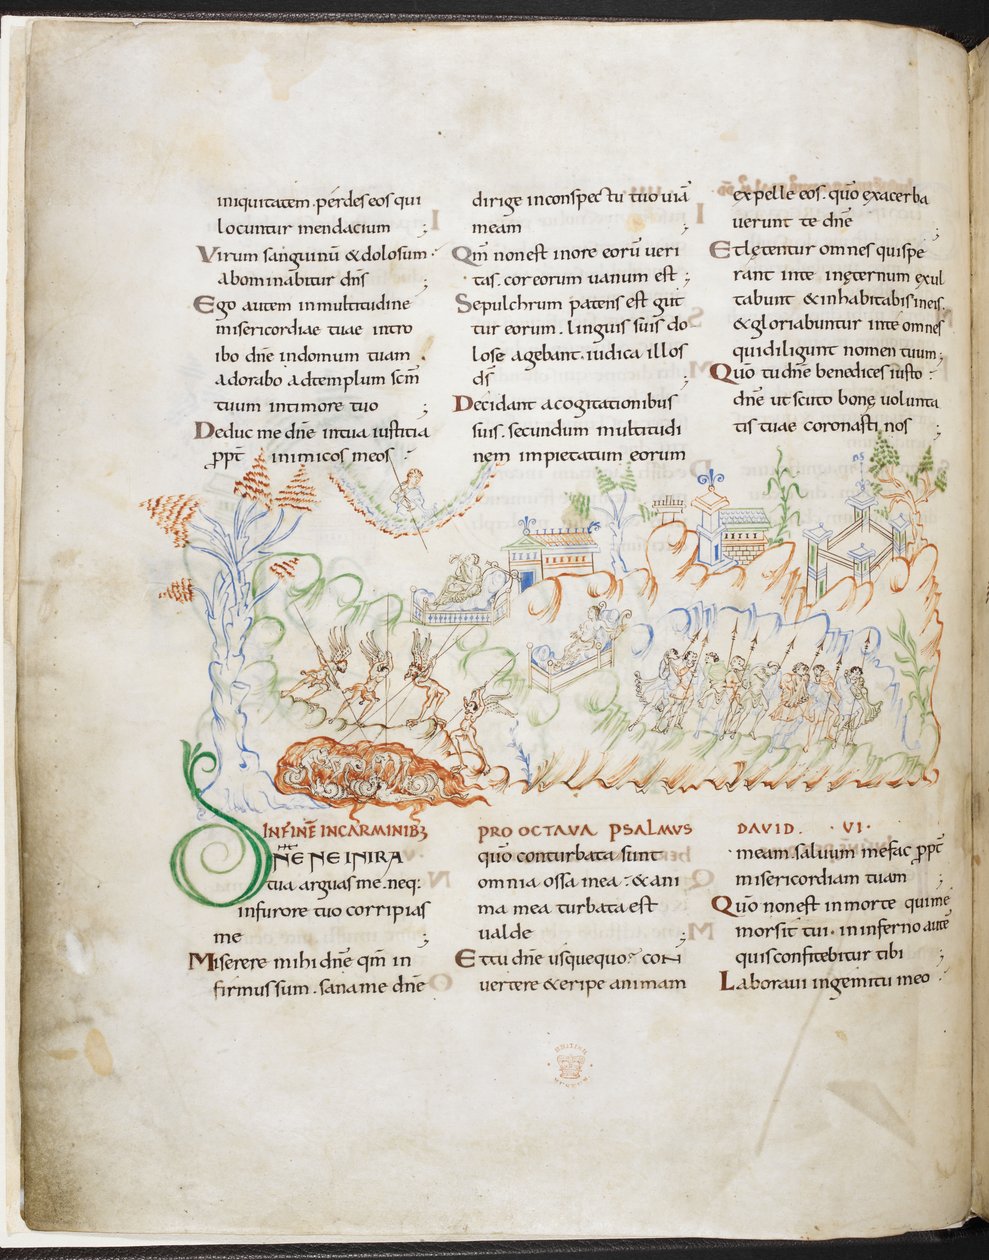 iniquitatem. perdes eos qui
locuntur mendacium ;
Virum sanguinū & dolosum
abominabitur dn̄s ;
Ego autem in multitudine
misericordiae tuae intro
ibo dn̄e in domum tuam .
adorabo ad templum scm̄
tuum in timore tuo ;
Deduc me dn̄e in tua iustitia
ꝓpt̄ inimicos meos :
dirige in conspectu tuo uiā
meam ;
Qm̄ non est in ore eorū ueri
tas. cor eorum uanum est ;
Sepulchrum patens est gut
tur eorum. linguis suis do
lose agebant. iudica illos
ds̄ ;
Decidant a cogitationibus
suis. secundum multitudi
nem impietatum eorum
expelle eos. quō exacerba
uerunt te dn̄e ;
Et lętentur omnes qui spe
rant in te in ęternum exul
tabunt & inhabitabis in eis.
& gloriabuntur in te omnes
qui diligunt nomen tuum ;
Quō tu dn̄e benedices iusto :
dn̄e ut scuto bonę uolunta
tis tuae coronasti nos ;
IN FINĒ IN CARMINIBꝫ
PRO OCTAVA PSALMUS
DAVID . · VI ·
DNE NE IN IRA
tua arguas me. neq:
in furore tuo corripias
me ;
Miserere mihi dn̄e qm̄ in
firmus sum. sana me dn̄e
quō conturbata sunt
omnia ossa mea : & ani
ma mea turbata est
ualde ;
Et tu dn̄e usquequo : con
uertere & eripe animam
meam. saluum me fac ꝓpt̄
misericordiam tuam ;
Quō non est in morte qui me
mor sit tui. in inferno autē
quis confitebitur tibi ;
Laboraui in gemitu meo
BRITISH
MUSEUM